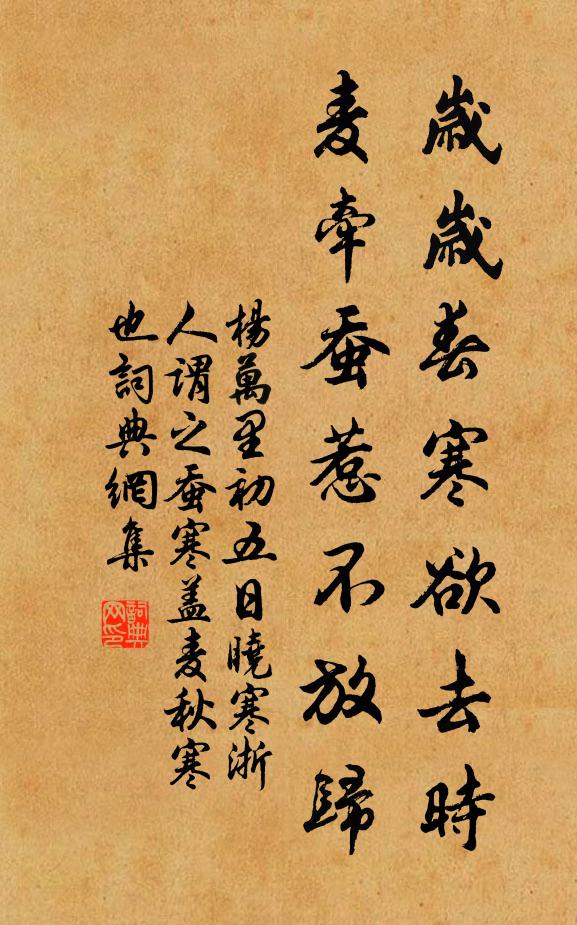 歲歲春寒欲去時
麦牽蚕惹不放歸
楊萬里初五日曉寒浙
人謂之蚕寒盖麦秋寒
也詞典網集
詞典網印